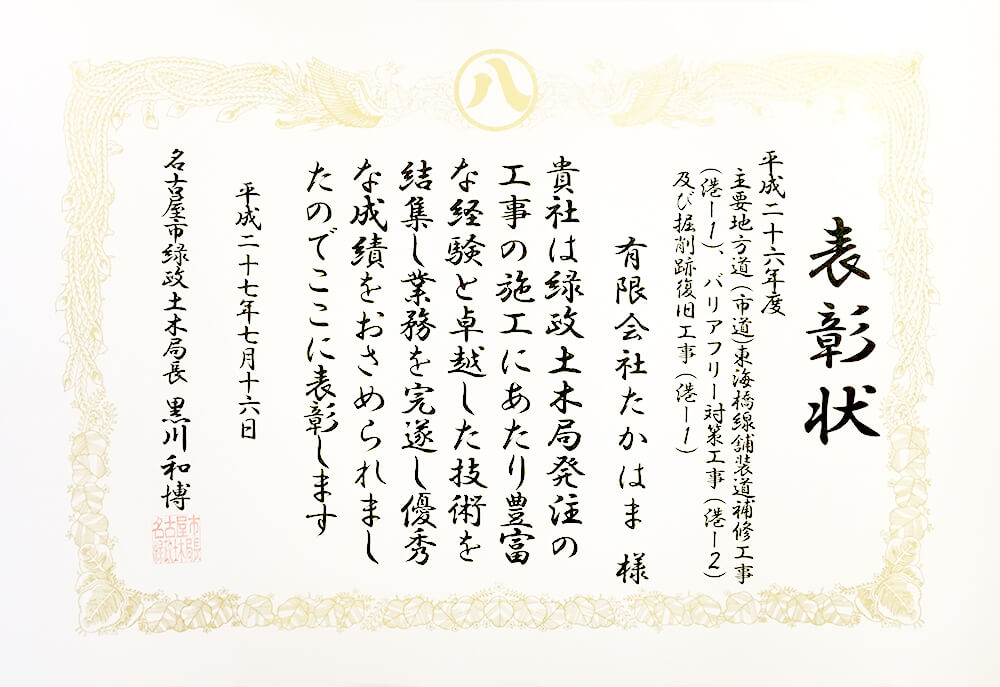 八
表彰状
平成二十六年度
主要地方道(市道)東海橋線舗装道補修工事
(港ー1)、バリアフリー対策工事(港ー2)
及び掘削跡復旧工事(港ー1)
有限会社たかはま 様
貴社は緑政土木局発注の
工事の施工にあたり豊富
な経験と卓越した技術を
結集し業務を完遂し優秀
な成績をおさめられまし
たのでここに表彰します
平成二十七年七月十六日
名古屋市緑政土木局長 黒川和博
名古屋市
緑政土木局長